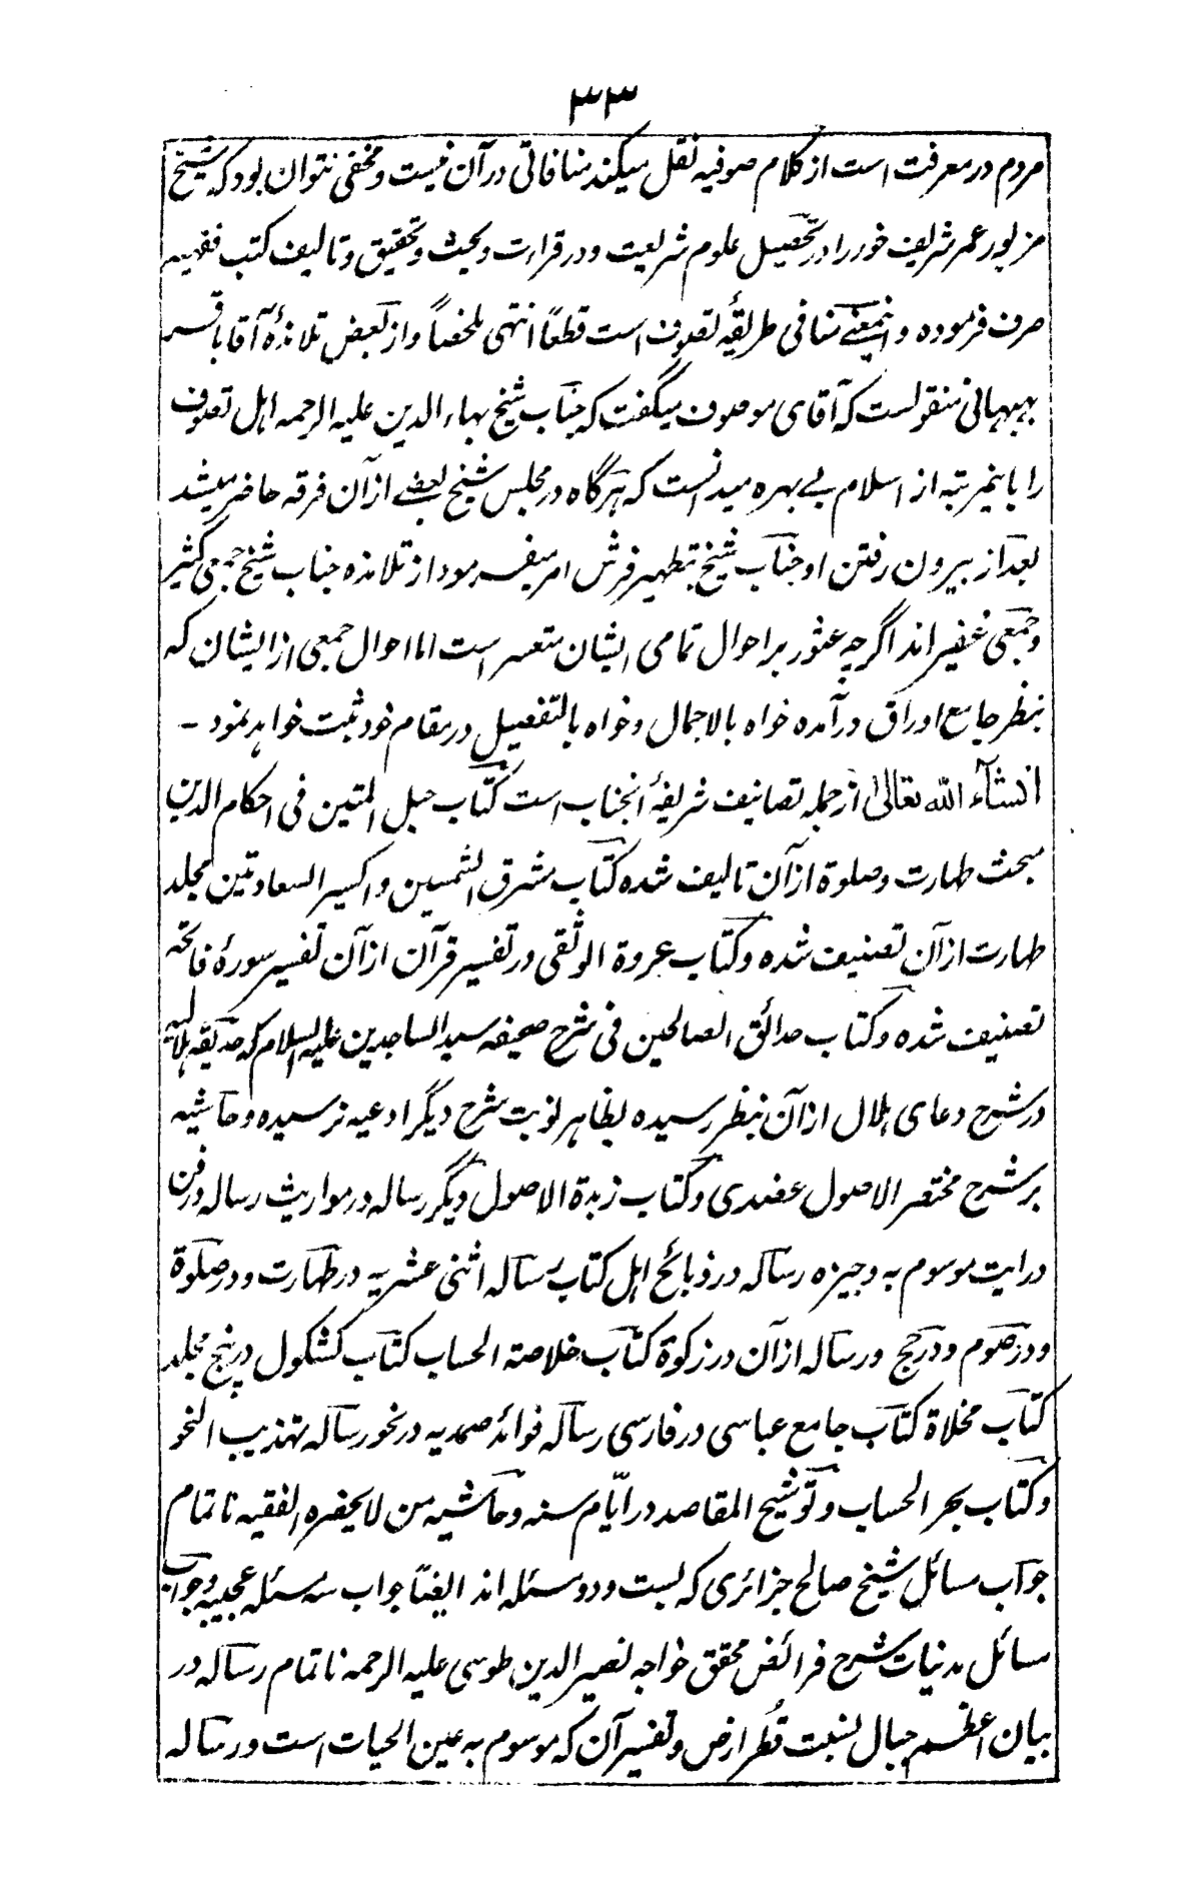 ٣٣
مردم در معرفت است از کلام صوفیه نقل میکند منافاتی در آن نیست و مخفی نتوان بود که شیخ
مزبور عمر شریف خود را در تحصیل علوم شریعت و در قراءت و بحث و تحقیق و تالیف کتب فقهیه
صرف فرموده و اینمعنے منافی طریقهٔ تصوف است قطعاً انتهی ملخصاً و از بعض تلامذهٔ آقا باقر
بهبهانی منقولست که آقای موصوف میگفت که جناب شیخ بهاء الدین علیه الرحمه اهل تصوف
را باینمرتبه از اسلام بے بهره میدانست که هرگاه در مجلس شیخ بعضے از آن فرقه حاضر میشد
بعد از بیرون رفتن او جناب شیخ بتطهیر فرش امر میفرمود از تلامذه جناب شیخ جمعی کثیر
و جمعی غفیر اند اگرچه عثور بر احوال تمامی ایشان متعسر است اما احوال جمعی از ایشان که
بنظر جامع اوراق در آمده خواه بالاجمال و خواه بالتفصیل در مقام خود ثبت خواهد نمود -
انشآء الله تعالیٰ از جمله تصانیف شریفهٔ آنجناب است کتاب حبل المتین فی احکام الدین
مبحث طهارت و صلوة از آن تالیف شده کتاب مشرق الشمسین و اکسیر السعادتین مجلد
طهارت از آن تصنیف شده و کتاب عروة الوثقی در تفسیر قرآن از آن تفسیر سورهٔ فاتحه
تصنیف شده و کتاب حدائق الصالحین فی شرح صحیفه سید الساجدین علیه السلام که حدیقه هلالیه
در شرح دعای هلال از آن بنظر رسیده بظاهر نوبت شرح دیگر ادعیه نرسیده و حاشیه
بر شرح مختصر الاصول عضدی و کتاب زبدة الاصول دیگر رساله در مواریث رساله در فن
درایت موسوم به وجیزه رساله در ذبائح اهل کتاب رساله اثنی عشریه در طهارت و در صلوة
و در صوم و در حج و رساله از آن در زکوة کتاب خلاصة الحساب کتاب کشکول در پنج مجلد
کتاب مخلاة کتاب جامع عباسی در فارسی رساله فوائد صمدیه در نحو رساله تهذیب النحو
و کتاب بحر الحساب و توشیح المقاصد در ایّام سنه و حاشیه من لا یحضره الفقیه ناتمام
جواب مسائل شیخ صالح جزائری که بست و دو مسئله اند ایضاً جواب سه مسئله عجیبه و جواب
مسائل مدنیات شرح فرائض محقق خواجه نصیر الدین طوسی علیه الرحمه ناتمام رساله در
بیان اعظم جبال نسبت قُطر ارض و تفسیر آن که موسوم به عین الحیات است و رساله